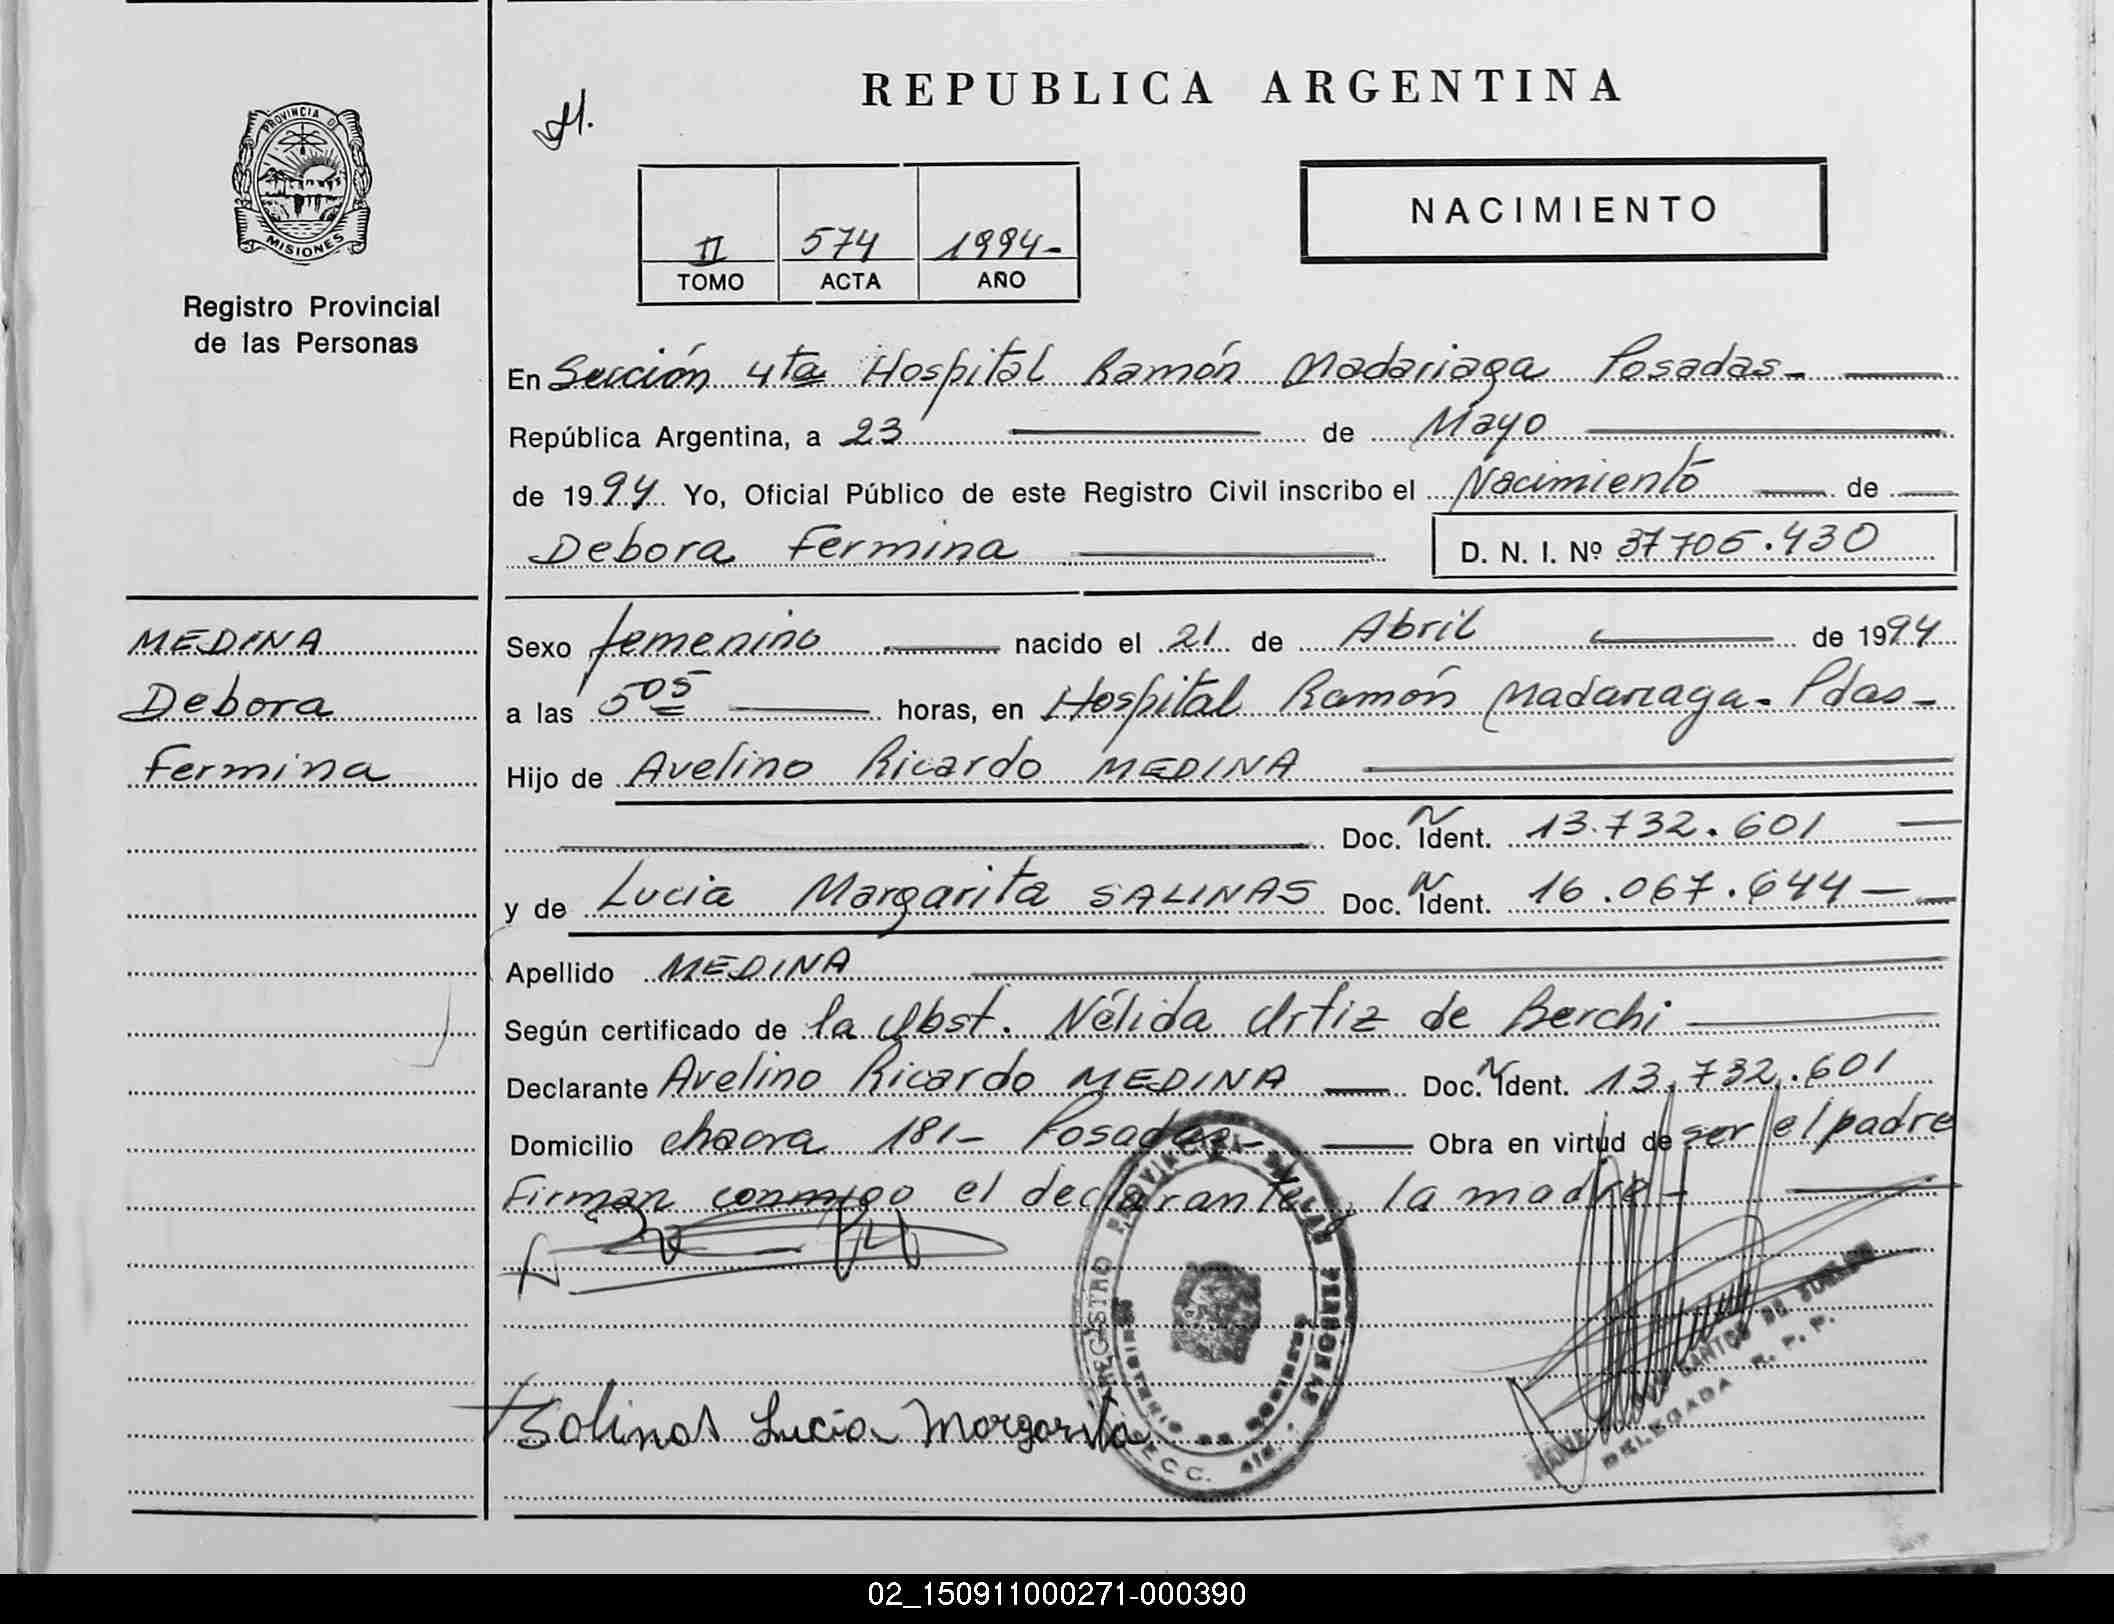 PROVINCIA D
MISIONES
Registro Provincial
de las Personas
MEDINA
Debora
Fermina
REPUBLICA ARGENTINA
II 574 1994-
TOMO ACTA AÑO
NACIMIENTO
En Sección 4ta Hospital Ramón Madariaga Posadas-
República Argentina, a 23 de Mayo
de 1994 Yo, Oficial Público de este Registro Civil inscribo el Nacimiento de
Debora Fermina D. N. I. Nº 37705.430
Sexo femenino nacido el 21 de Abril de 1994
a las 5 05 horas, en Hospital Ramón Madariaga- Pdas-
Hijo de Avelino Ricardo MEDINA
Doc. Ident. 13.732.601
y de Lucia Margarita SALINAS Doc. Ident. 16.067.644-
Apellido MEDINA
Según certificado de la Obst. Nélida Ortiz de Berchi
Declarante Avelino Ricardo MEDINA Doc. Ident. 13.732.601
Domicilio chacra 181- Posadas- Obra en virtud de ser el padre
Firman conmigo el declarante y la madre-
Salinas Lucia Margarita
REGISTRO PROVINCIAL DE LAS PERSONAS
MINISTERIO DE GOBIERNO
SANTOS DE
DELEGADA R. P. P.
02_150911000271-000390